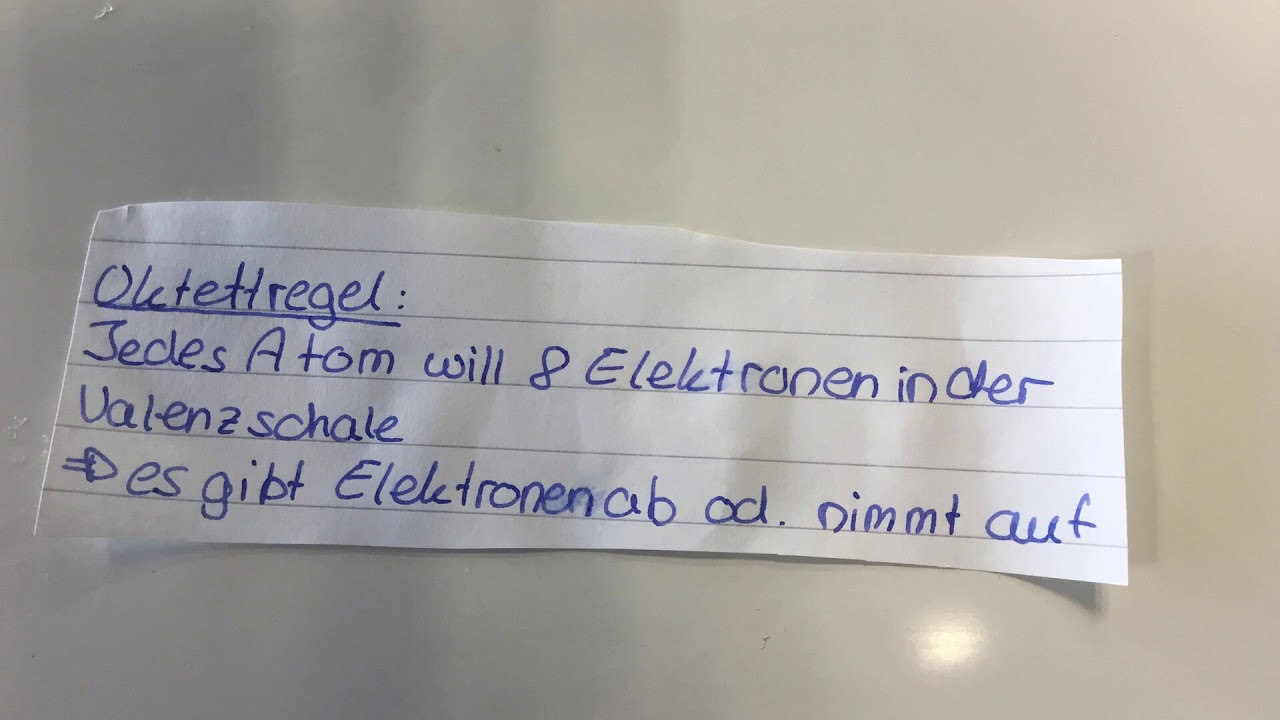 Oktettregel:
Jedes Atom will 8 Elektronen in der
Valenzschale
⇒ es gibt Elektronen ab od. nimmt auf